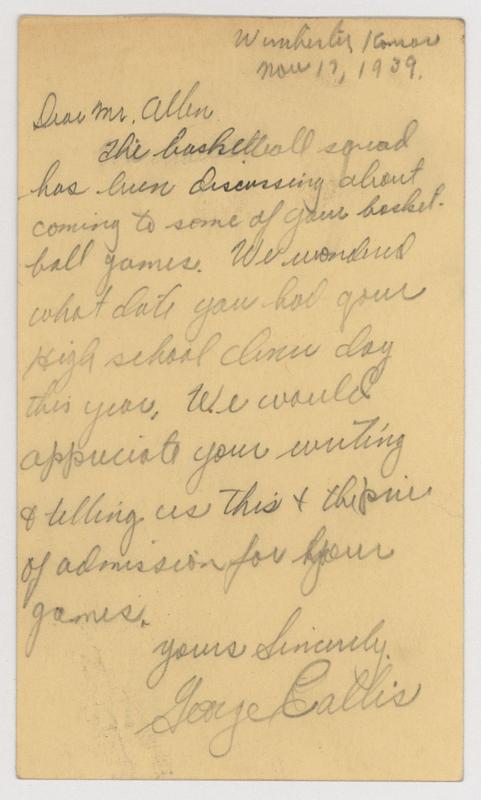 Winchester, Kansas
Nov 17, 1939.
Dear Mr. Allen
The basketball squad
has been discussing about
coming to some of your basket-
ball games. We wondered
what date you had your
High school clinic day
this year. We would
appreciate your writing
& telling us this & the price
of admission for your
games.
yours Sincerely,
George Callis